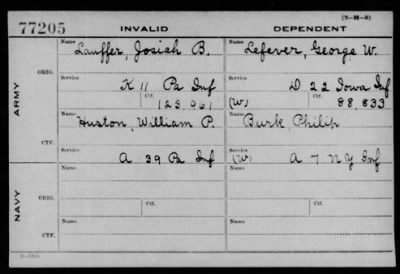 77205 INVALID DEPENDENT (3-H-8)
Name Lauffer, Josiah B. Name Lefever, George W.
ORIG. Service K 11 Pa Inf Service D 22 Iowa Inf
Ctf. 123,961 (W) Ctf. 88,833
ARMY
Name Huston, William P. Name Burk, Philip
CTF. Service A 39 Pa Inf Service (W) A 7 N Y Inf
Name Name
ORIG. Service Service
Ctf. Ctf.
NAVY
Name Name
CTF. Service Service